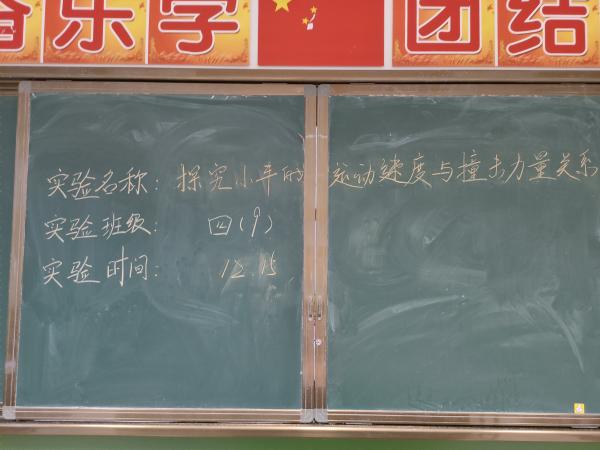 奋乐学 团结
实验名称：探究小车的运动速度与撞击力量关系
实验班级：四(9)
实验时间：12.15